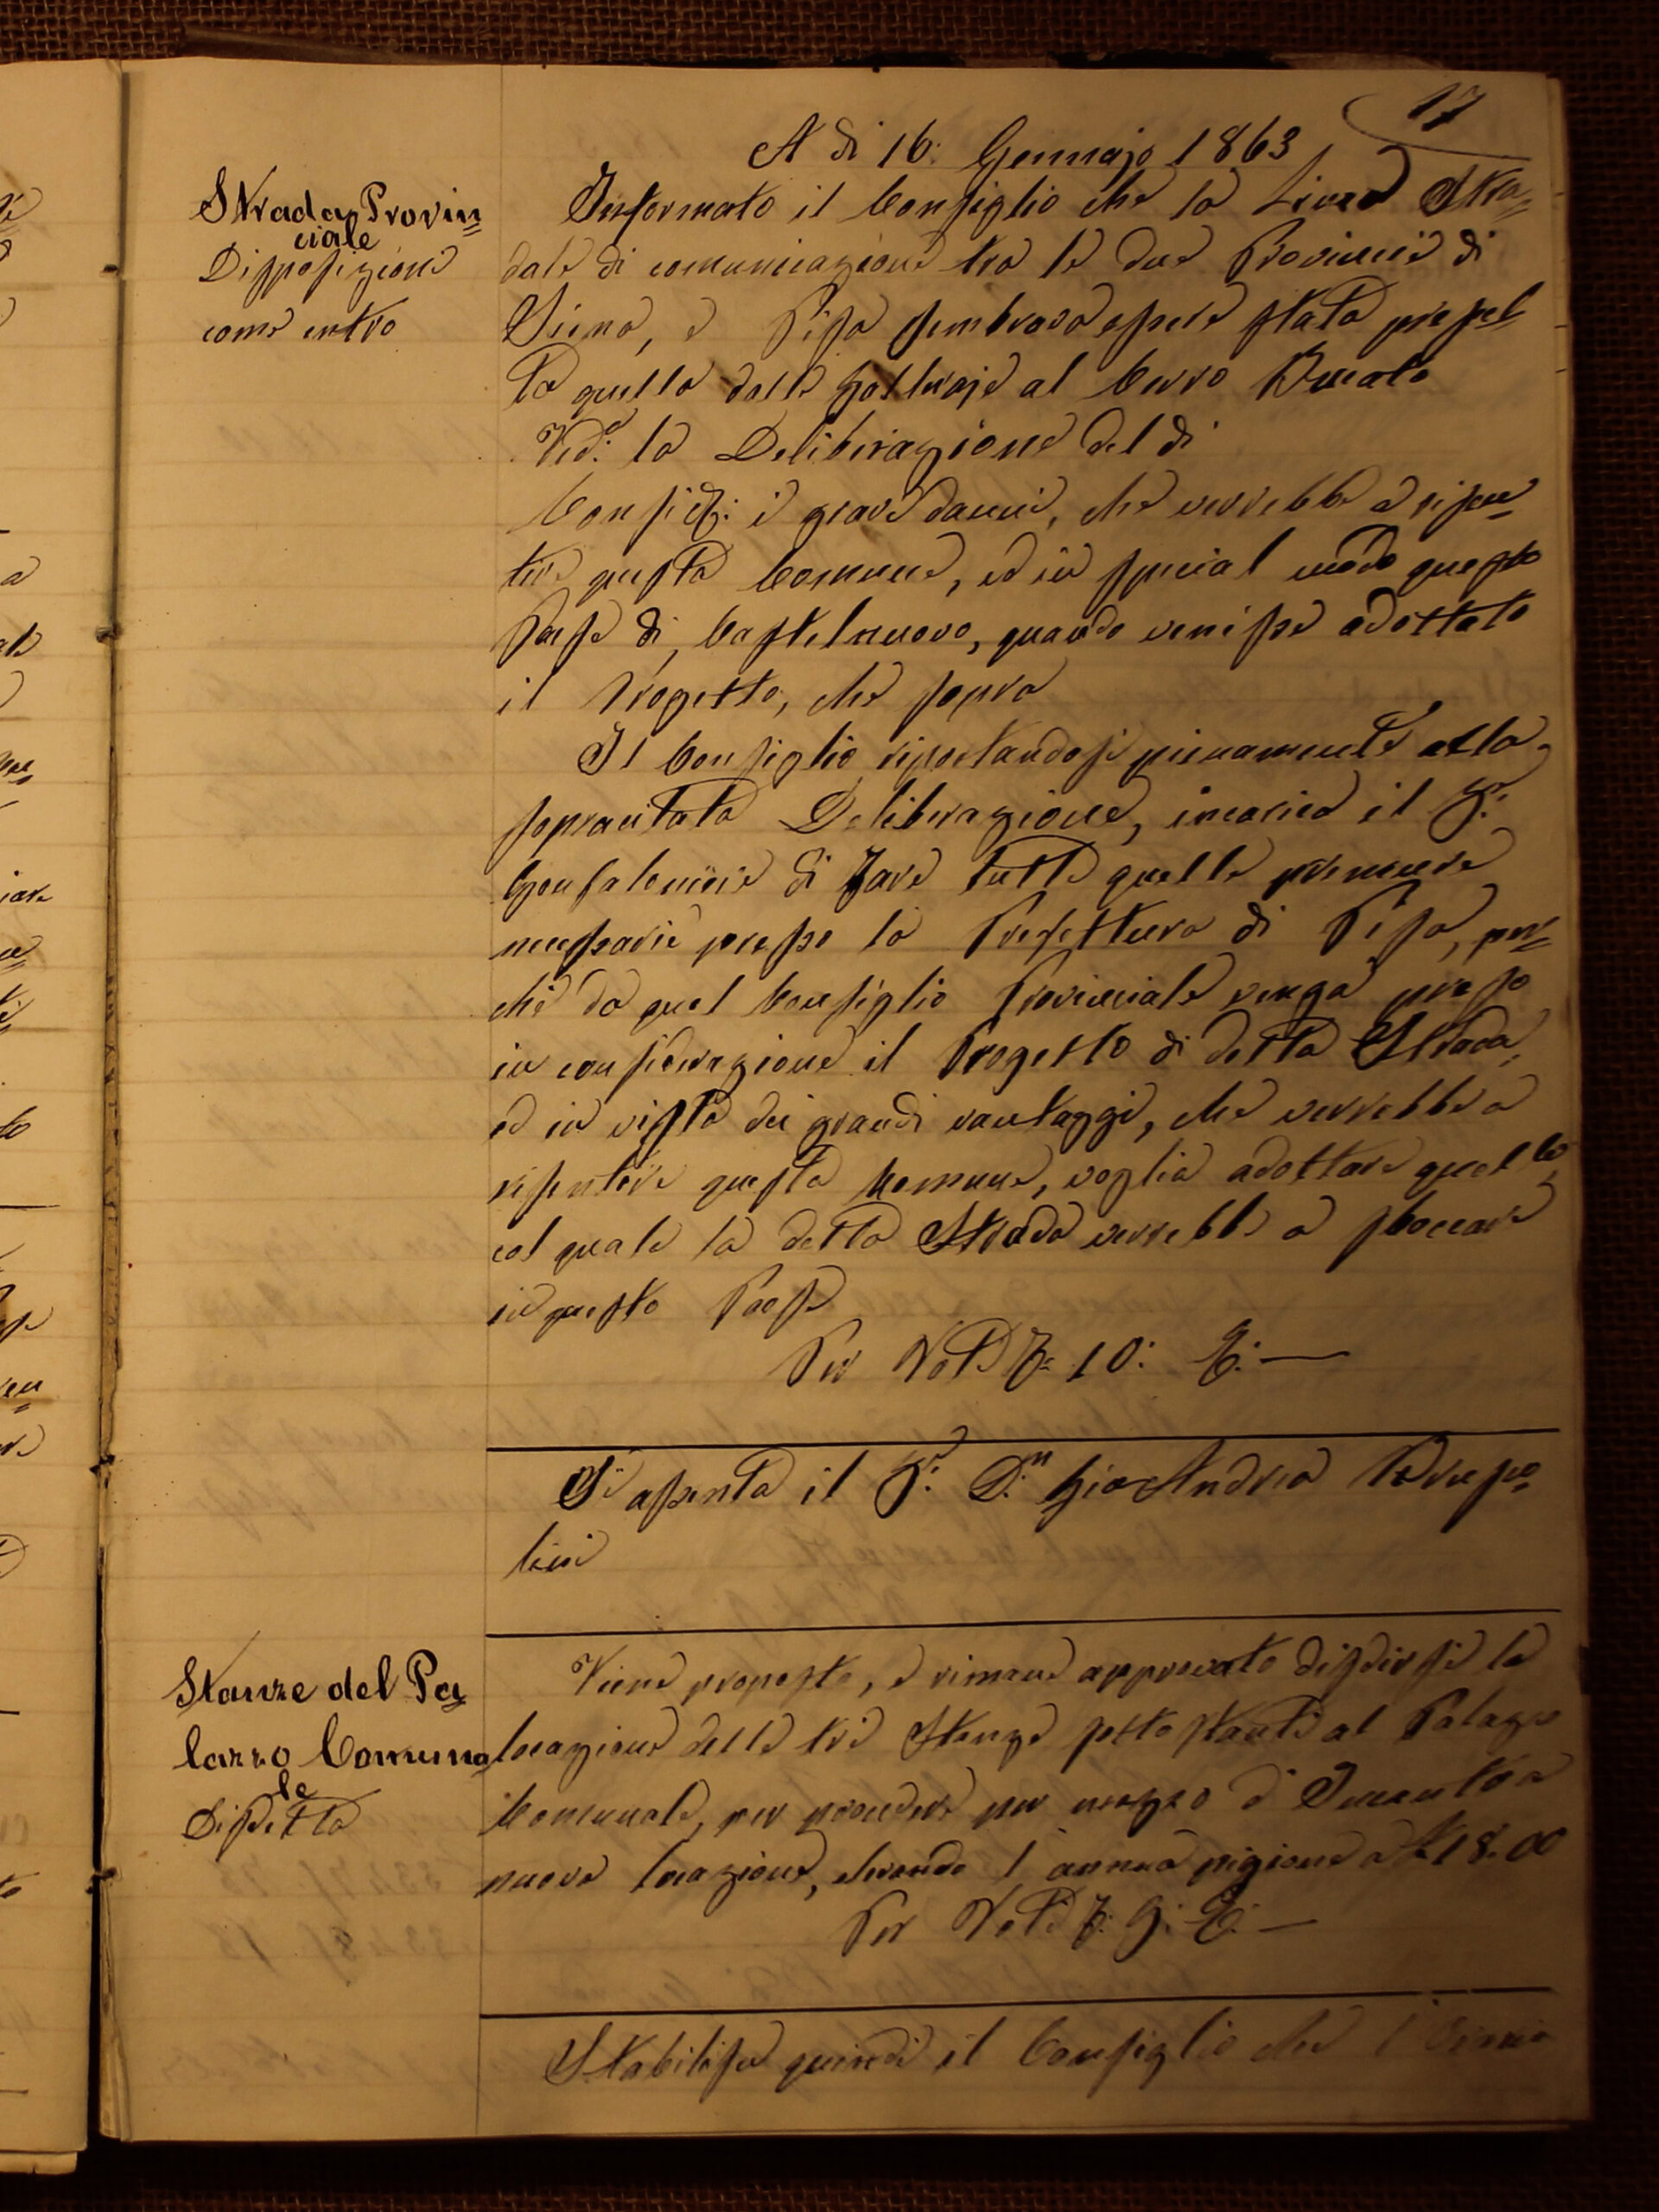 17
A di 16: Gennajo 1863
Strada Provin=
ciale
Disposizione
come entro
Informato il Consiglio che la Linea Stra=
dale di comunicazione tra le due Provincie di
Siena, e Pisa sembrava essere stata prescel
ta quella dalle Galleraje al Cerro Bucato
Ved: la Deliberazione del di
Consid: i gravi danni, che verrebbe a risen=
tire questa Comune, ed in special modo questo
Paese di Castelnuovo, quando venisse adottato
il Progetto, che sopra
Il Consiglio riportandosi pienamente alla
sopracitata Deliberazione, incarica il S:r
Gonfaloniere di fare tutte quelle premure
necessarie presso la Prefettura di Pisa, per=
chè da quel Consiglio Provinciale venga preso
in considerazione il Progetto di detta Strada,
ed in vista dei grandi vantaggi, che verrebbe a
risentire questa Comune, voglia adottare quello
col quale la detta Strada verrebbe a sboccare
in questo Paese
Per Voti F: 10: C: —
Si assenta il S:r D:n Gio Andrea
lini
Stanze del Pa=
lazzo Comuna
le
Disdetta
Viene proposto, e rimane approvato disdirsi la
locazione delle tre Stanze sottostanti al Palazzo
Comunale, per procedere per mezzo d'Incanto a
nuova locazione, elevando l'annua pigione a £ 18.00
Per Voti F: 9: C: —
Stabilisce quindi il Consiglio che l'